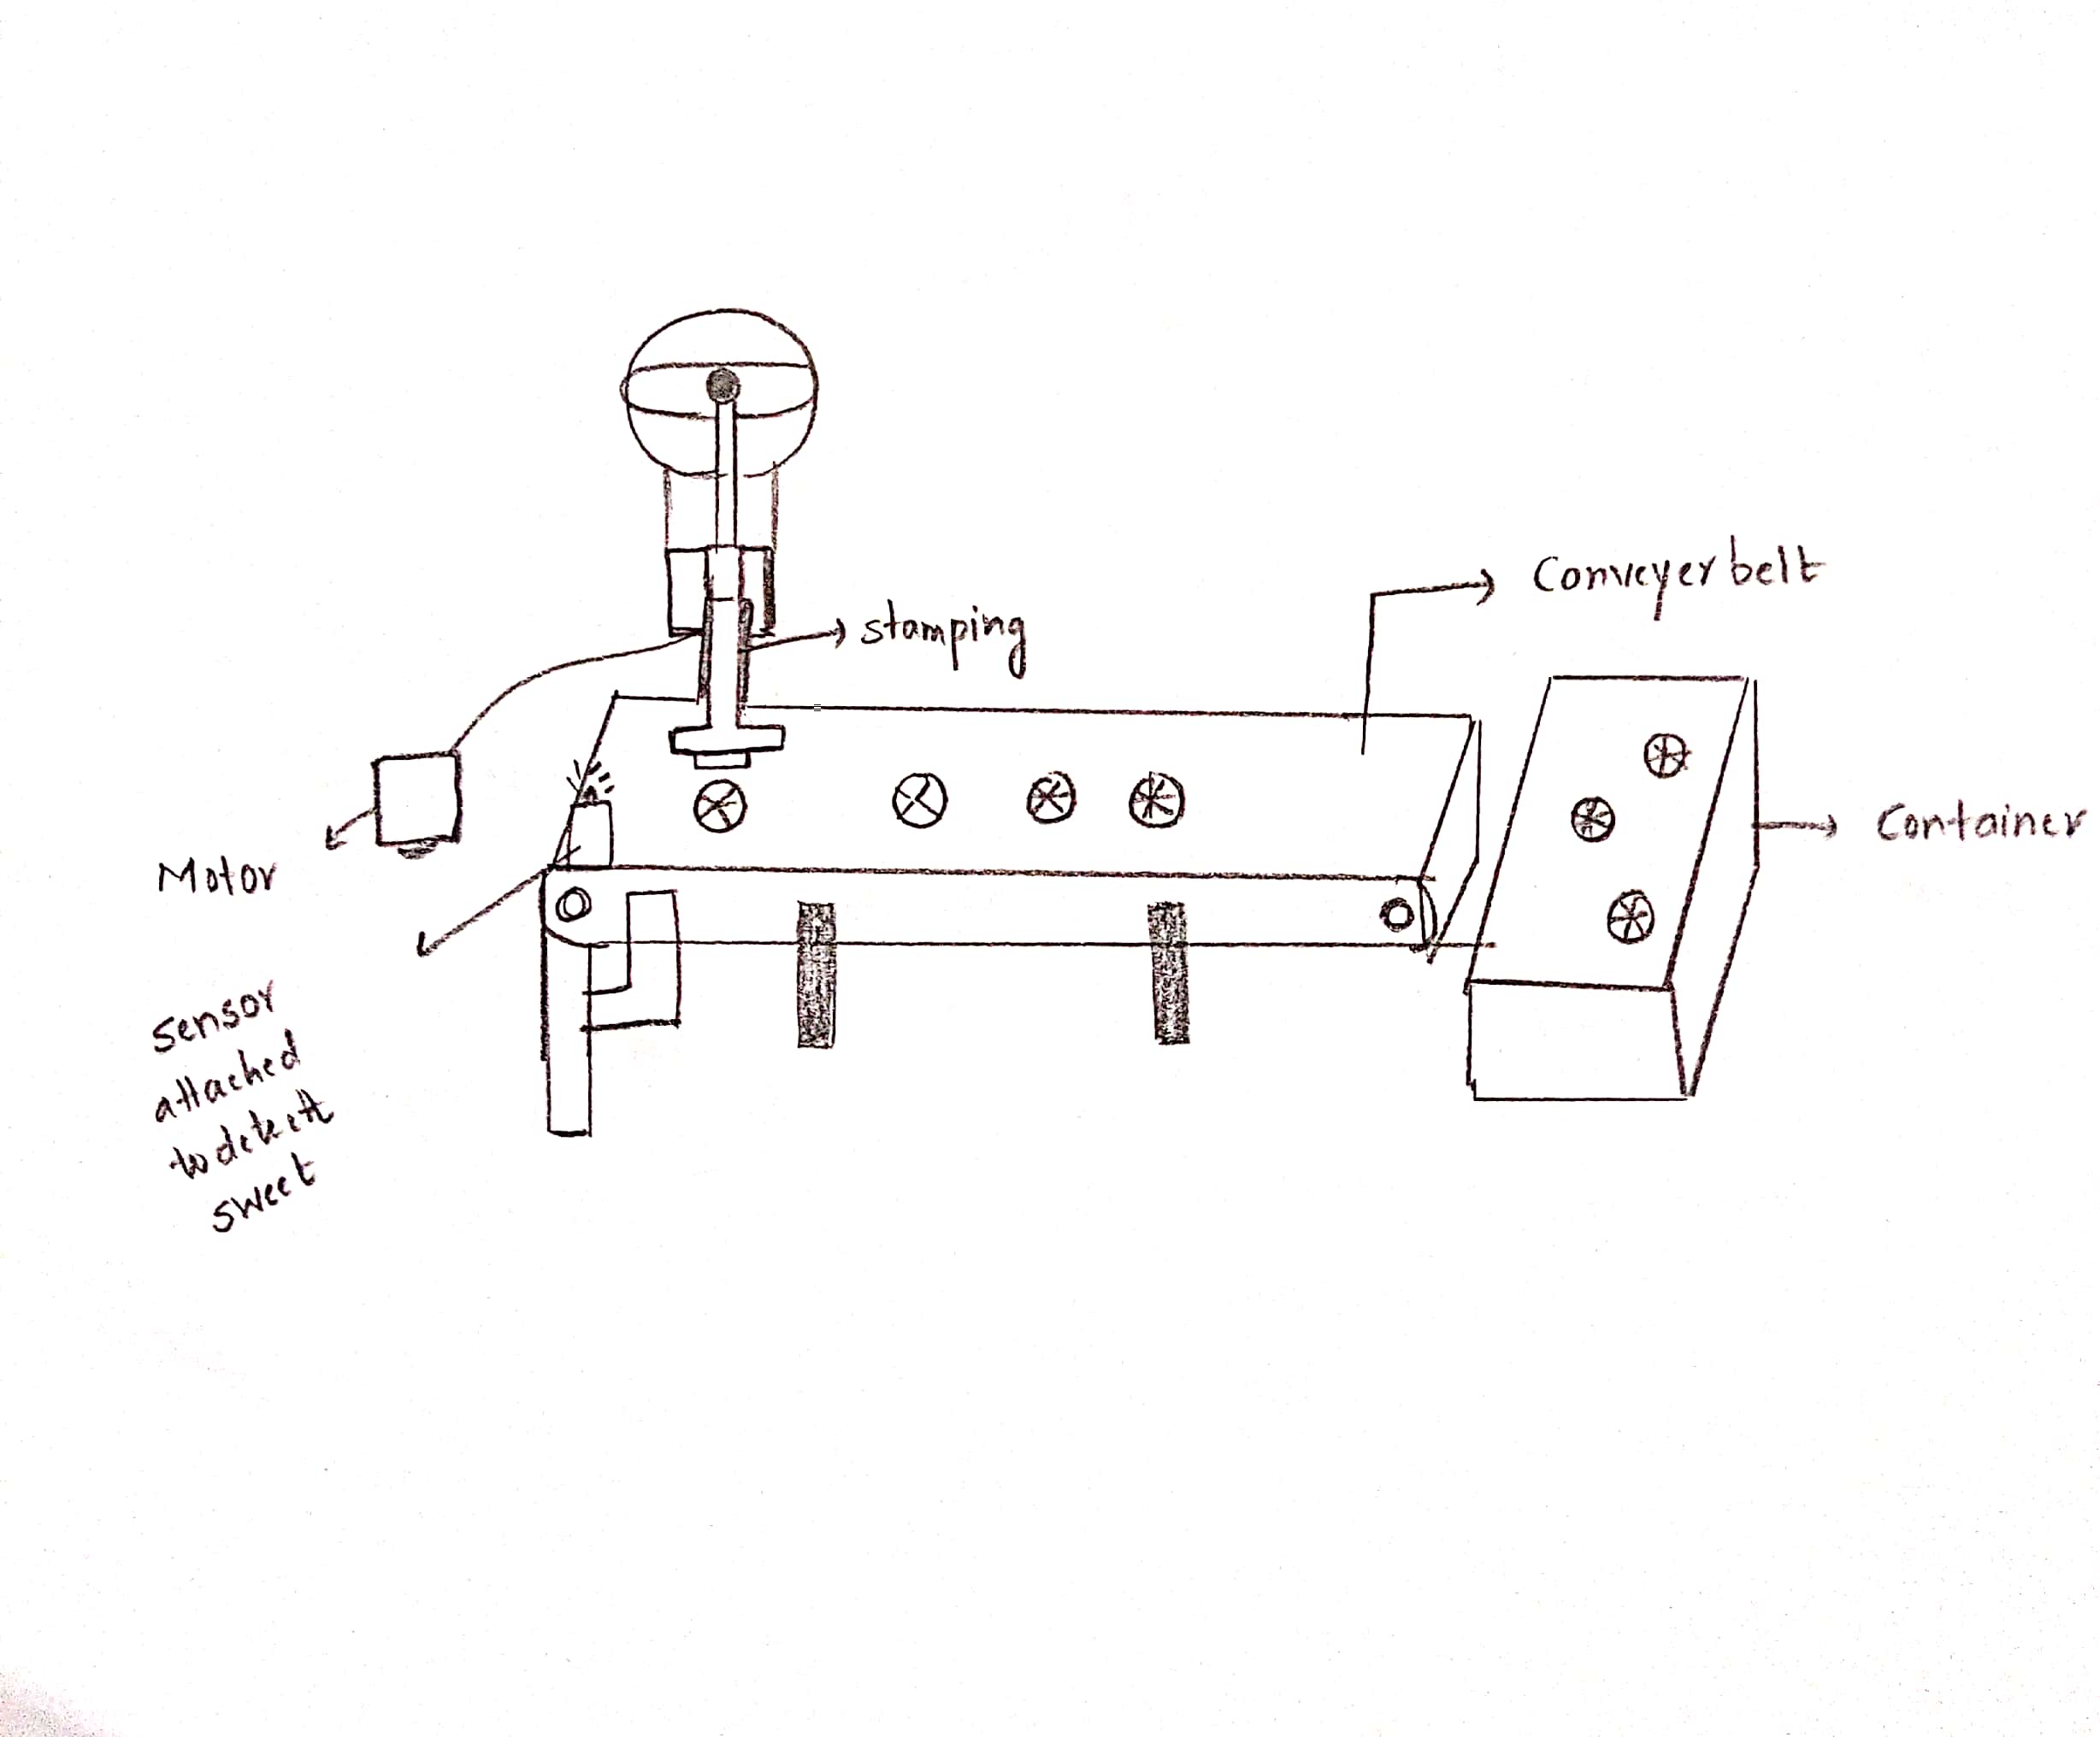 Conveyer belt
stamping
Container
Motor
sensor
attached
to detett
sweet